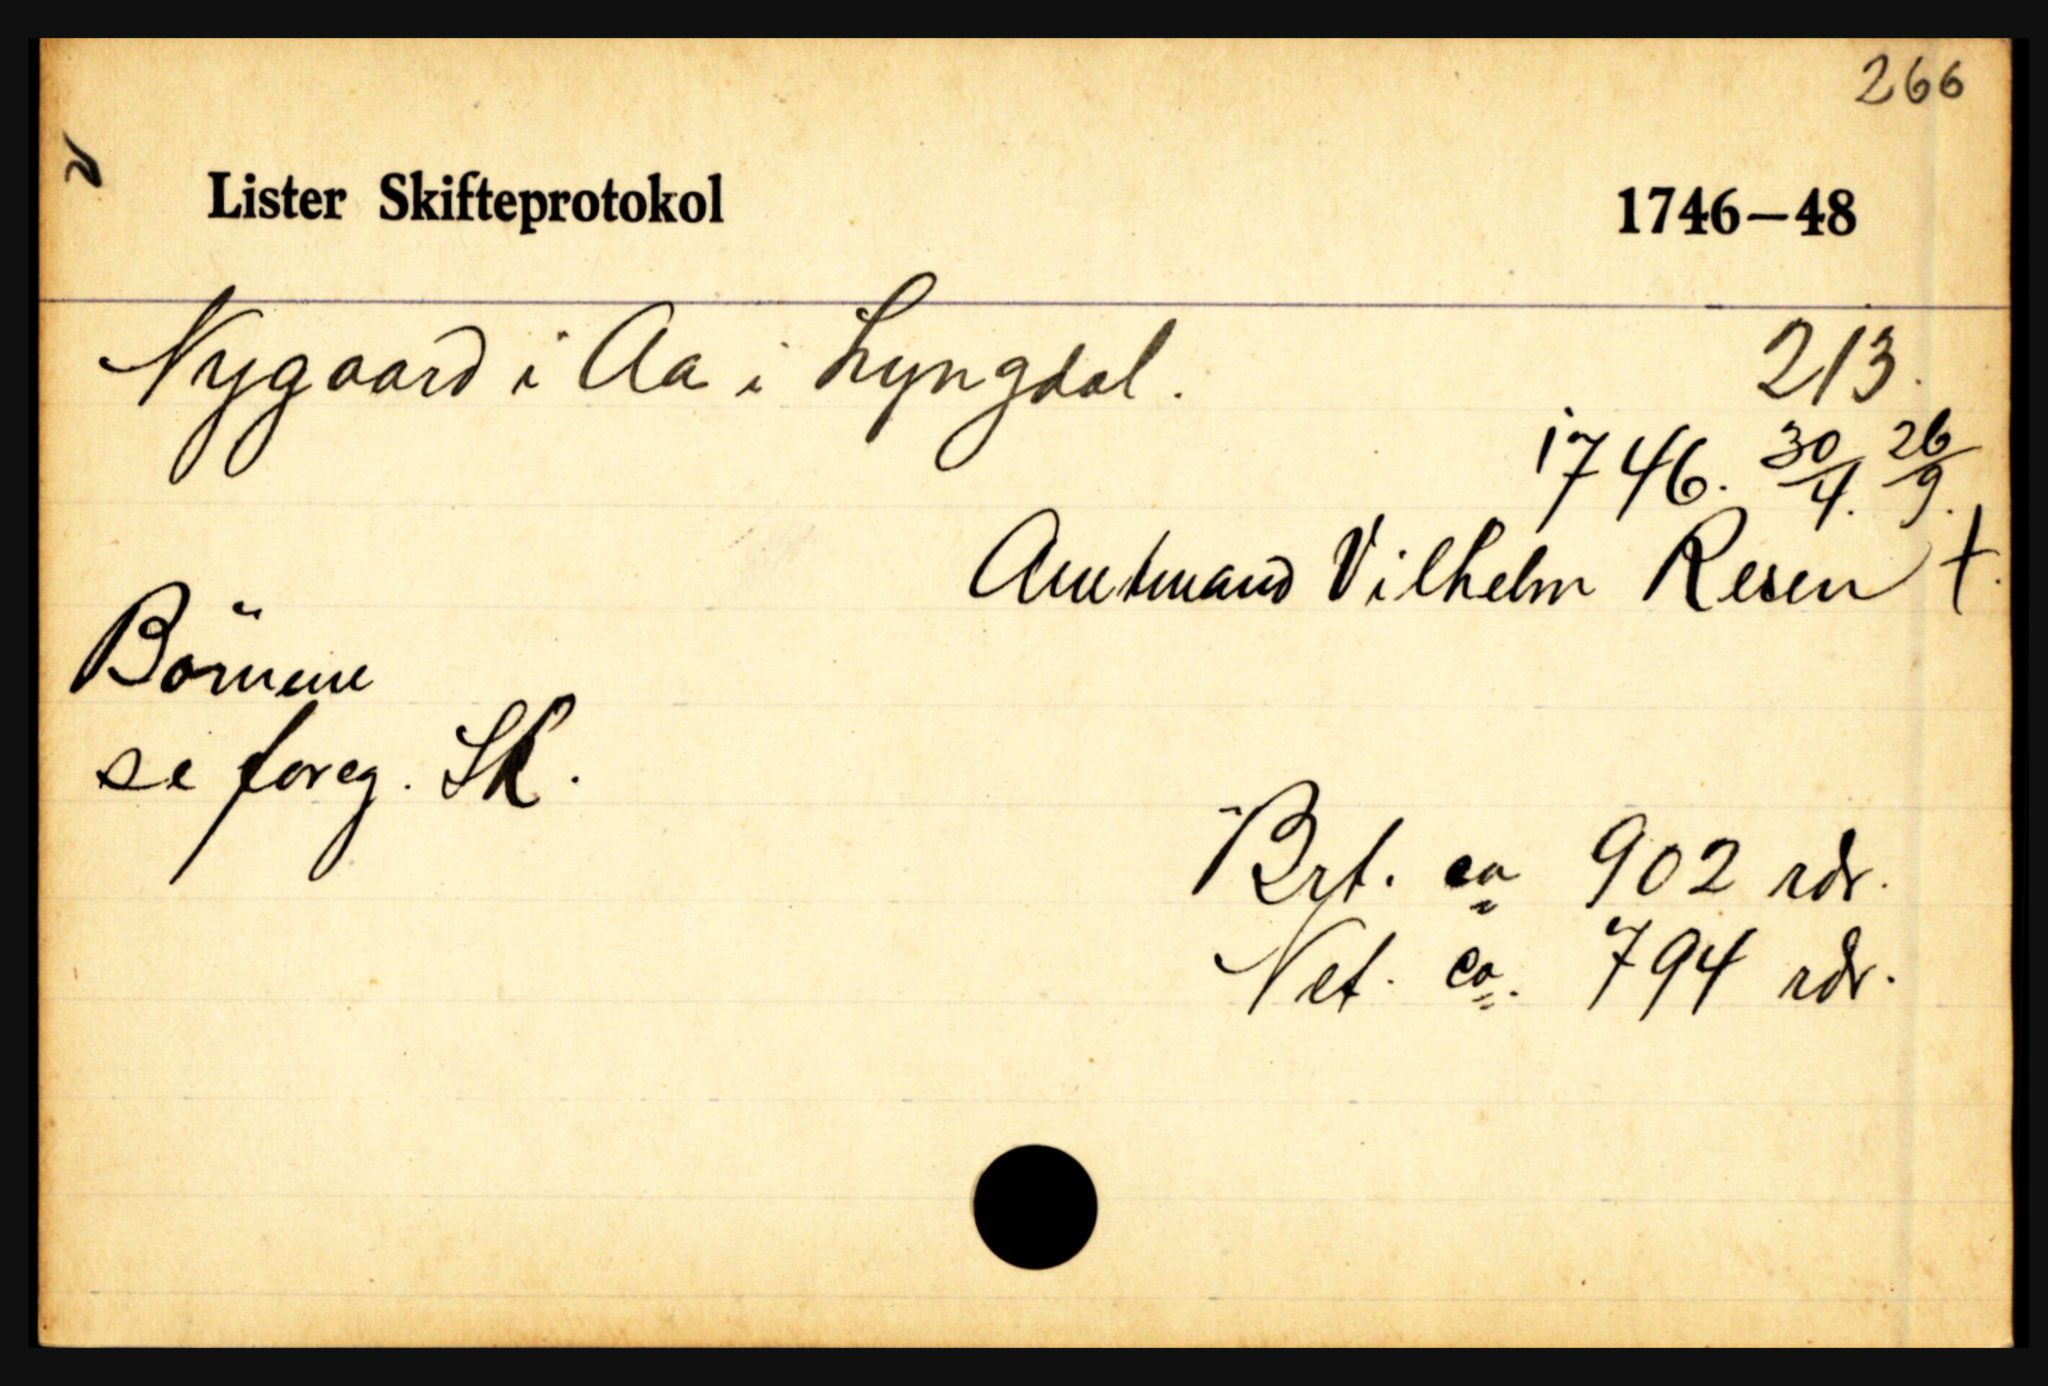 266
Lister Skifteprotokol 1746–48
Nygaard i Aa i Lyngdal. 213.
1746. 30/4. 26/9.
Amtmand Vilhelm Resen †.
Börnene
se foreg. Sk.
Brt. ca 902 rdr.
Net. ca. 794 rdr.